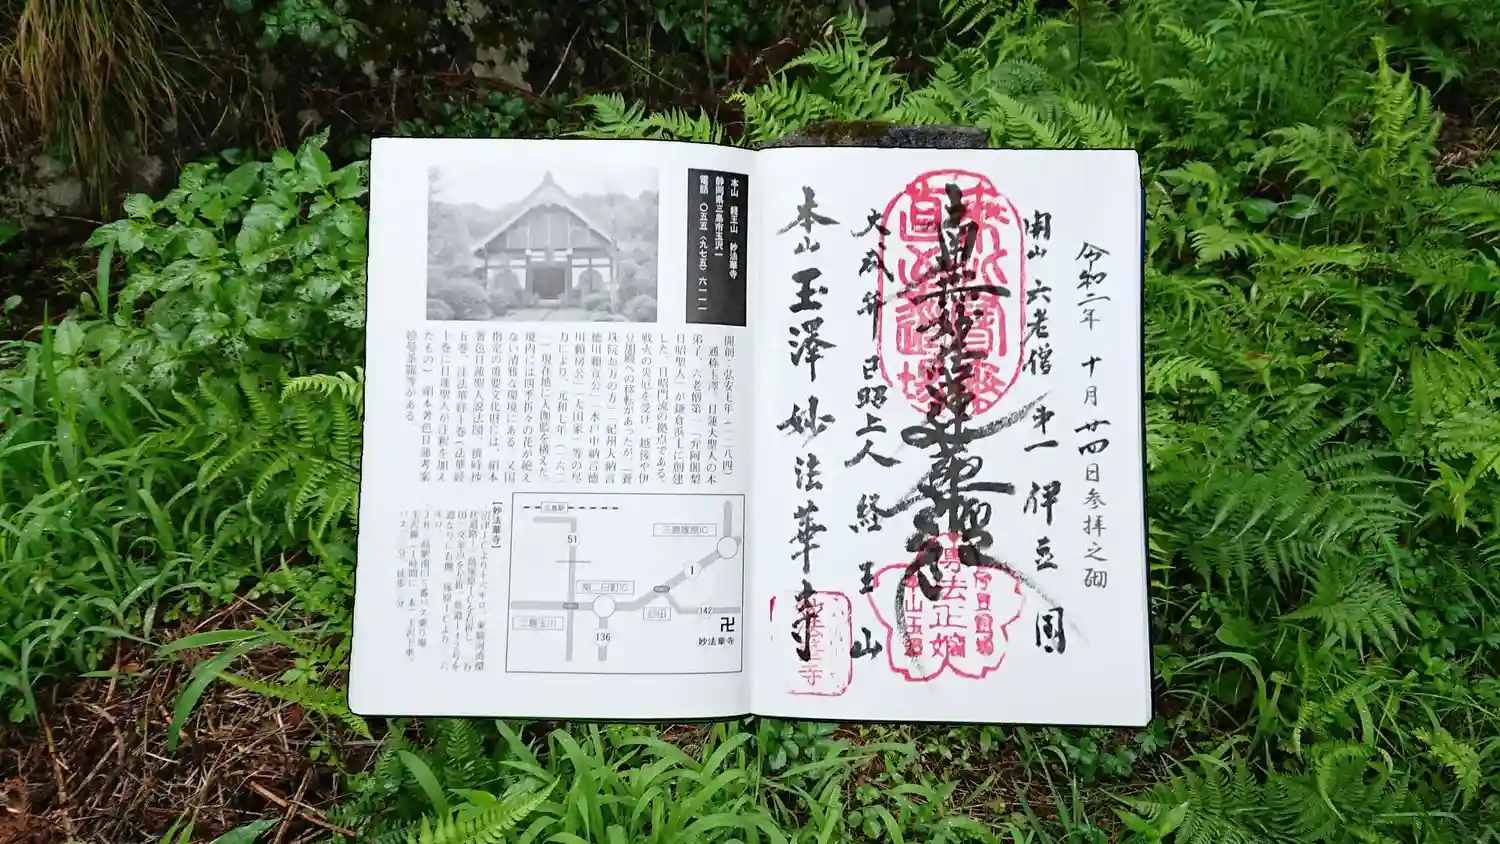 令和二年 十月廿四日参拝之砌
開山 六老僧 第一 伊豆國
南無妙法蓮華経
大成弁日昭上人 経王山
本山 玉澤 妙法華寺
本山 経王山 妙法華寺
静岡県三島市玉沢一
電話 〇五五（九七五）六一一一
開創・弘安七年（一二八四）
通称玉澤。日蓮大聖人の本
弟子、六老僧第一「弁阿闍梨
日昭聖人」が鎌倉浜土に創建
した、日昭門流の拠点である。
戦火の災厄を受け、越後や伊
豆加殿への移転があったが、「養
珠院お万の方」「紀州大納言
徳川頼宣公」「水戸中納言徳
川頼房公」「太田家」等の尽
力により、元和七年（一六二
一）現在地に大伽藍を構えた。
境内には四季折々の花が絶え
ない清雅な環境にある。又国
指定の重要文化財には、絹本
著色日蓮聖人説法図、撰時抄
五巻、注法華経十巻（法華経
十巻に日蓮聖人が注釈を加え
たもの）、絹本著色日蓮
曼荼羅等がある。
【妙法華寺】
三島駅
51
三島塚原IC
1
南二日町IC
三島玉川
谷田
142
136
卍
妙法華寺